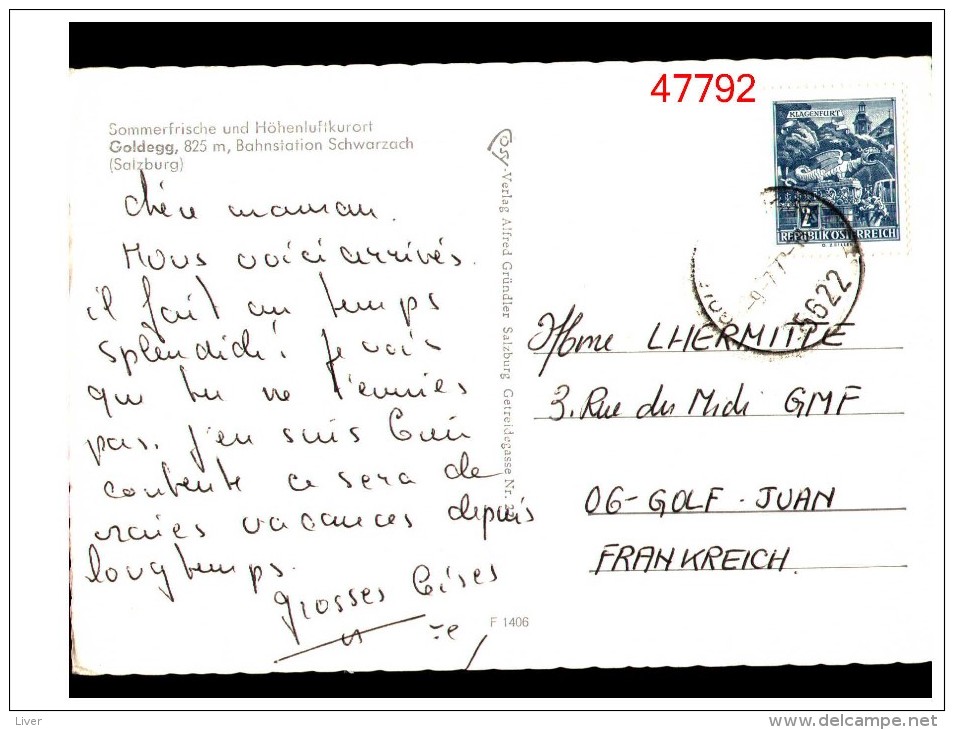 47792
Sommerfrische und Höhenluftkurort
Goldegg, 825 m, Bahnstation Schwarzach
(Salzburg)
chère maman.
Nous voici arrivés.
il fait un temps
splendide! je vois
que tu ne t'ennuies
pas. j'en suis bien
contente ce sera de
vraies vacances depuis
longtemps.
grosses bises
Cosy-Verlag Alfred Gründler Salzburg Getreidegasse Nr.
F 1406
KLAGENFURT
REPUBLIK ÖSTERREICH
5622
Mme LHERMITTE
3. Rue du Midi GMF
06-GOLF-JUAN
FRANKREICH.
Liver
www.delcampe.net